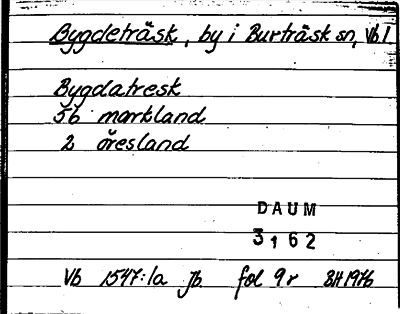 Bygdeträsk, by i Burträsk sn, Vb l
Bygdatresk
56 markland
2 öresland
DAUM
3162
Vb 1547:1a Jb fol 9r BH 1976